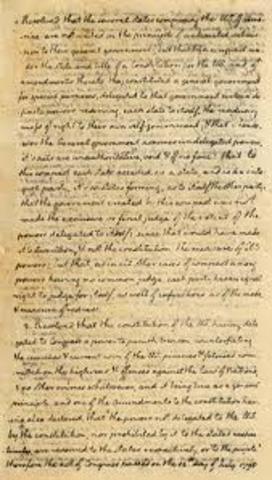 1. Resolved that the several states composing the US. of Ame-
rica are not united on the principle of unlimited submis-
sion to their general government; but that by a compact un-
der the style and title of a Constitution for the US. and of
amendments thereto, they constituted a general government
for special purposes, delegated to that government certain de-
finite powers, reserving each state to itself, the residuary
mass of right to their own self-government; & that whenso-
ever the General government assumes undelegated powers,
it's acts are unauthoritative, void, & of no force: that to
this compact each state acceded as a state, and is an inte-
gral party, it's co-states forming, as to itself, the other party:
that the government created by this compact was not
made the exclusive or final judge of the extent of the
powers delegated to itself; since that would have made
it's discretion, & not the constitution the measure of it's
powers: but that, as in all other cases of compact among
powers having no common judge, each party has an equal
right to judge for itself, as well of infractions as of the mode
& measure of redress.
2. Resolved that the constitution of the US. having dele-
gated to Congress a power to punish treason, counterfeiting
the securities & current coin of the US. piracies & felonies com-
mitted on the high seas & offences against the law of nations,
& no other crimes whatsoever, and it being true as a general
principle, and one of the amendments to the constitution hav-
ing also declared, that "the powers not delegated to the US.
by the constitution, nor prohibited by it to the states
are reserved to the states respectively, or to the people"
therefore the act of Congress passed on the 14th day of July 1798